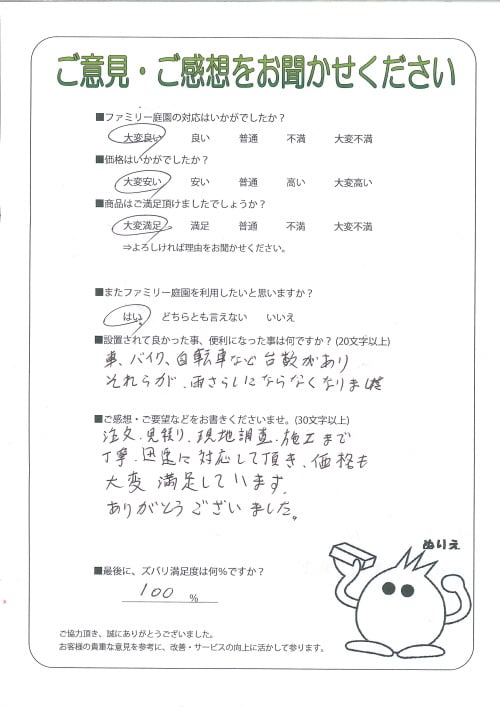 ご意見・ご感想をお聞かせください
■ファミリー庭園の対応はいかがでしたか？
大変良い 良い 普通 不満 大変不満
■価格はいかがでしたか？
大変安い 安い 普通 高い 大変高い
■商品はご満足頂けましたでしょうか？
大変満足 満足 普通 不満 大変不満
⇒よろしければ理由をお聞かせください。
■またファミリー庭園を利用したいと思いますか？
はい どちらとも言えない いいえ
■設置されて良かった事、便利になった事は何ですか？（20文字以上）
車、バイク、自転車など台数があり
それらが、雨さらしにならなくなりました
■ご感想・ご要望などをお書きくださいませ。（30文字以上）
注文、見積り、現地調査、施工まで
丁寧、迅速に対応して頂き、価格も
大変満足しています。
ありがとうございました。
ぬりえ
■最後に、ズバリ満足度は何％ですか？
100 ％
ご協力頂き、誠にありがとうございました。
お客様の貴重な意見を参考に、改善・サービスの向上に活かして参ります。